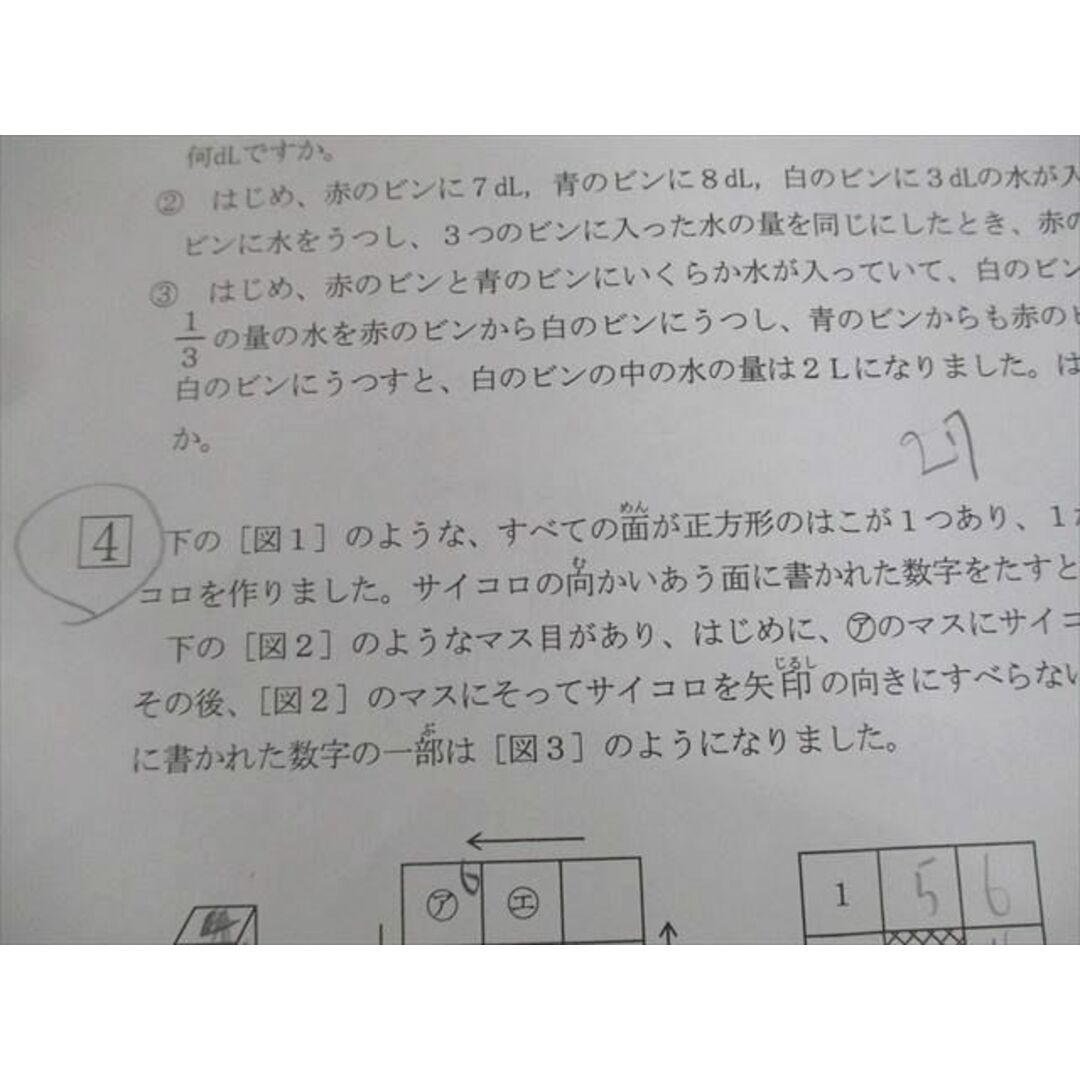 何dLですか。
② はじめ、赤のビンに7dL, 青のビンに8dL, 白のビンに3dLの水が入
ビンに水をうつし、3つのビンに入った水の量を同じにしたとき、赤の
③ はじめ、赤のビンと青のビンにいくらか水が入っていて、白のビン
1/3の量の水を赤のビンから白のビンにうつし、青のビンからも赤のビ
白のビンにうつすと、白のビンの中の水の量は2Lになりました。は
か。
4 下の[図1]のような、すべての面が正方形のはこが1つあり、1か
めん
コロを作りました。サイコロの向かいあう面に書かれた数字をたすと
む
下の[図2]のようなマス目があり、はじめに、㋐のマスにサイコ
その後、[図2]のマスにそってサイコロを矢印の向きにすべらない
じるし
に書かれた数字の一部は[図3]のようになりました。
ぶ
㋐ 6 ㋓
1 5 6